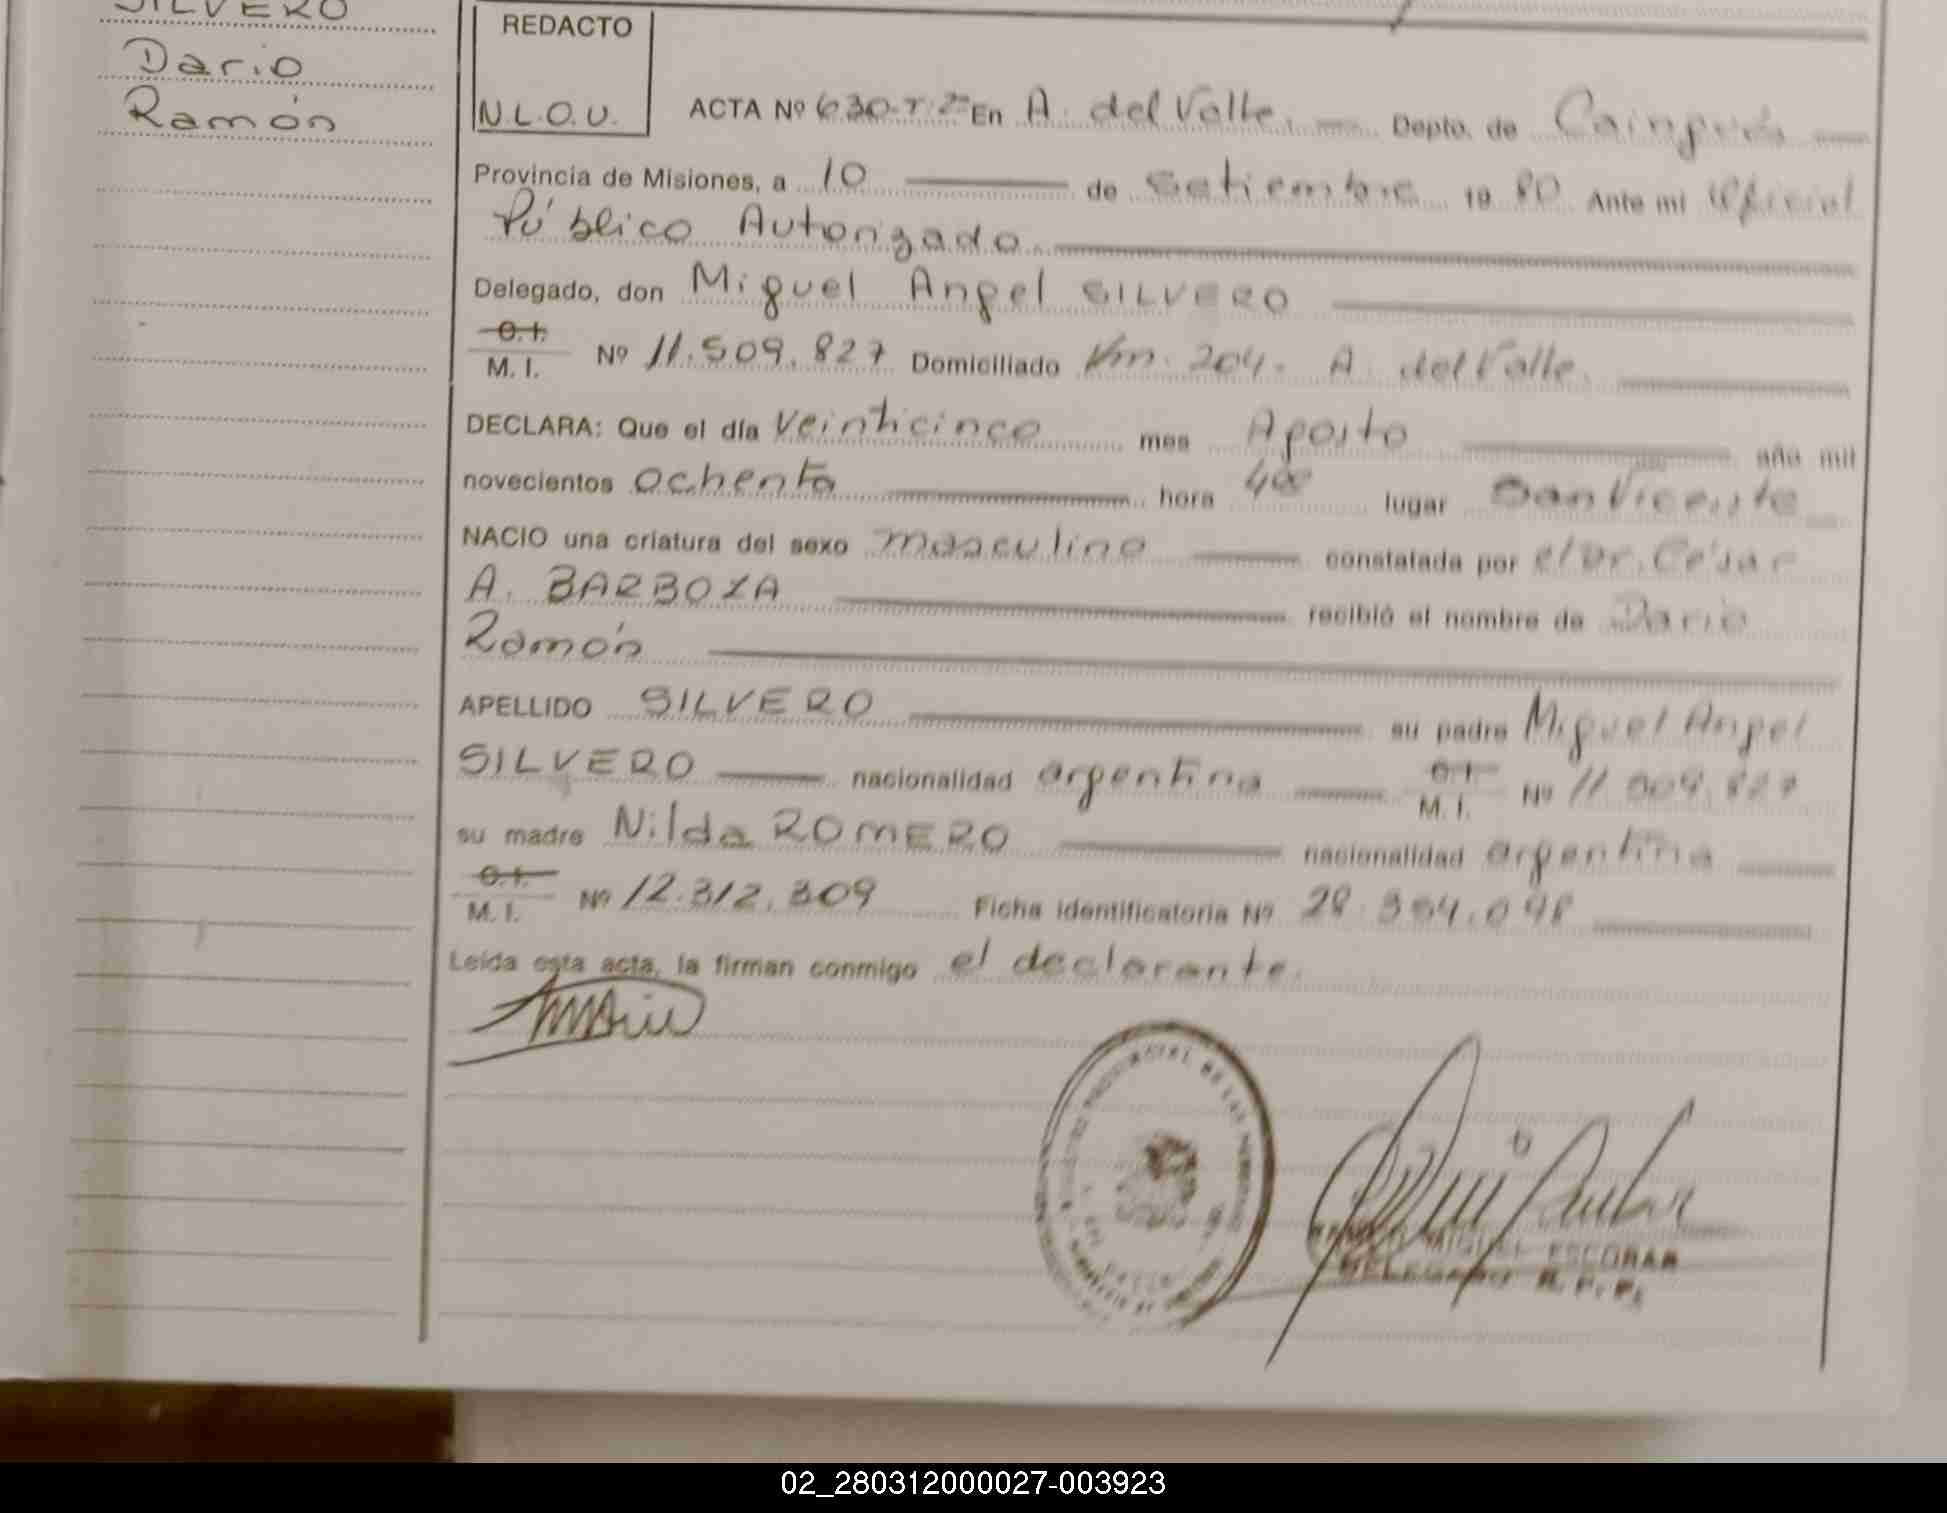 SILVERO
Dario
Ramón
REDACTO
N.L.O.U.
ACTA Nº 630-T.2º En A. del Valle. Depto. de Cainguás
Provincia de Misiones, a 10 de Setiembre 19 80 Ante mi Oficial
Público Autorizado.
Delegado, don Miguel Angel SILVERO
C.I.
M. I. Nº 11.509.827 Domiciliado Km. 204. A. del Valle.
DECLARA: Que el día Veinticinco mes Agosto año mil
novecientos ochenta hora 4 lugar San Vicente
NACIO una criatura del sexo masculino constatada por el Dr. César
A. BARBOZA recibió el nombre de Dario
Ramón
APELLIDO SILVERO su padre Miguel Angel
SILVERO nacionalidad argentina C.I. M. I. Nº 11.509.827
su madre Nilda ROMERO nacionalidad argentina
C.I.
M. I. Nº 12.312.309 Ficha identificatoria Nº 28.354.098
Leída esta acta, la firman conmigo el declarante.
MIGUEL ESCOBAR
DELEGADO R. P. P.
02_280312000027-003923